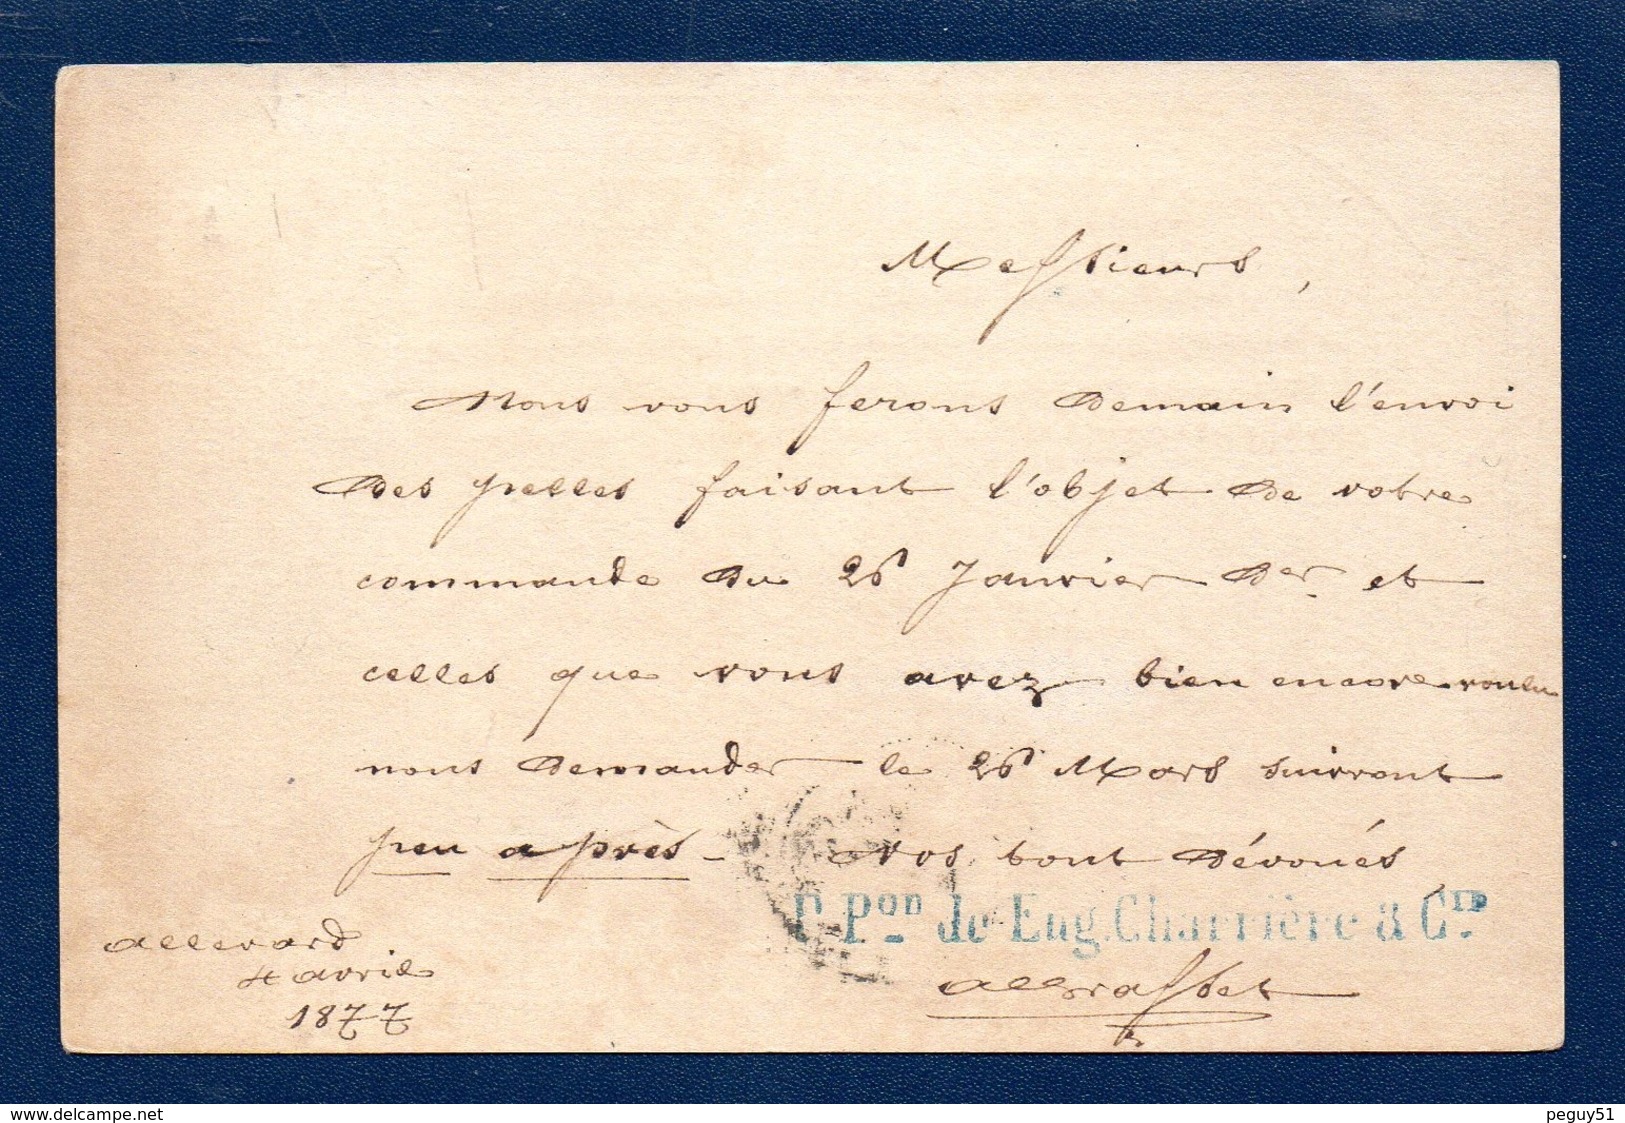 Messieurs,
Nous vous ferons demain l'envoi
des pelles faisant l'objet de votre
commande du 26 Janvier der. et
celles que vous avez bien encore voulu
nous demander le 26 Mars suivront
peu après - Vos tout dévoués
P. Pon de Eug. Charrière & Cie.
Allevard
4 avril
1877
www.delcampe.net
peguy51